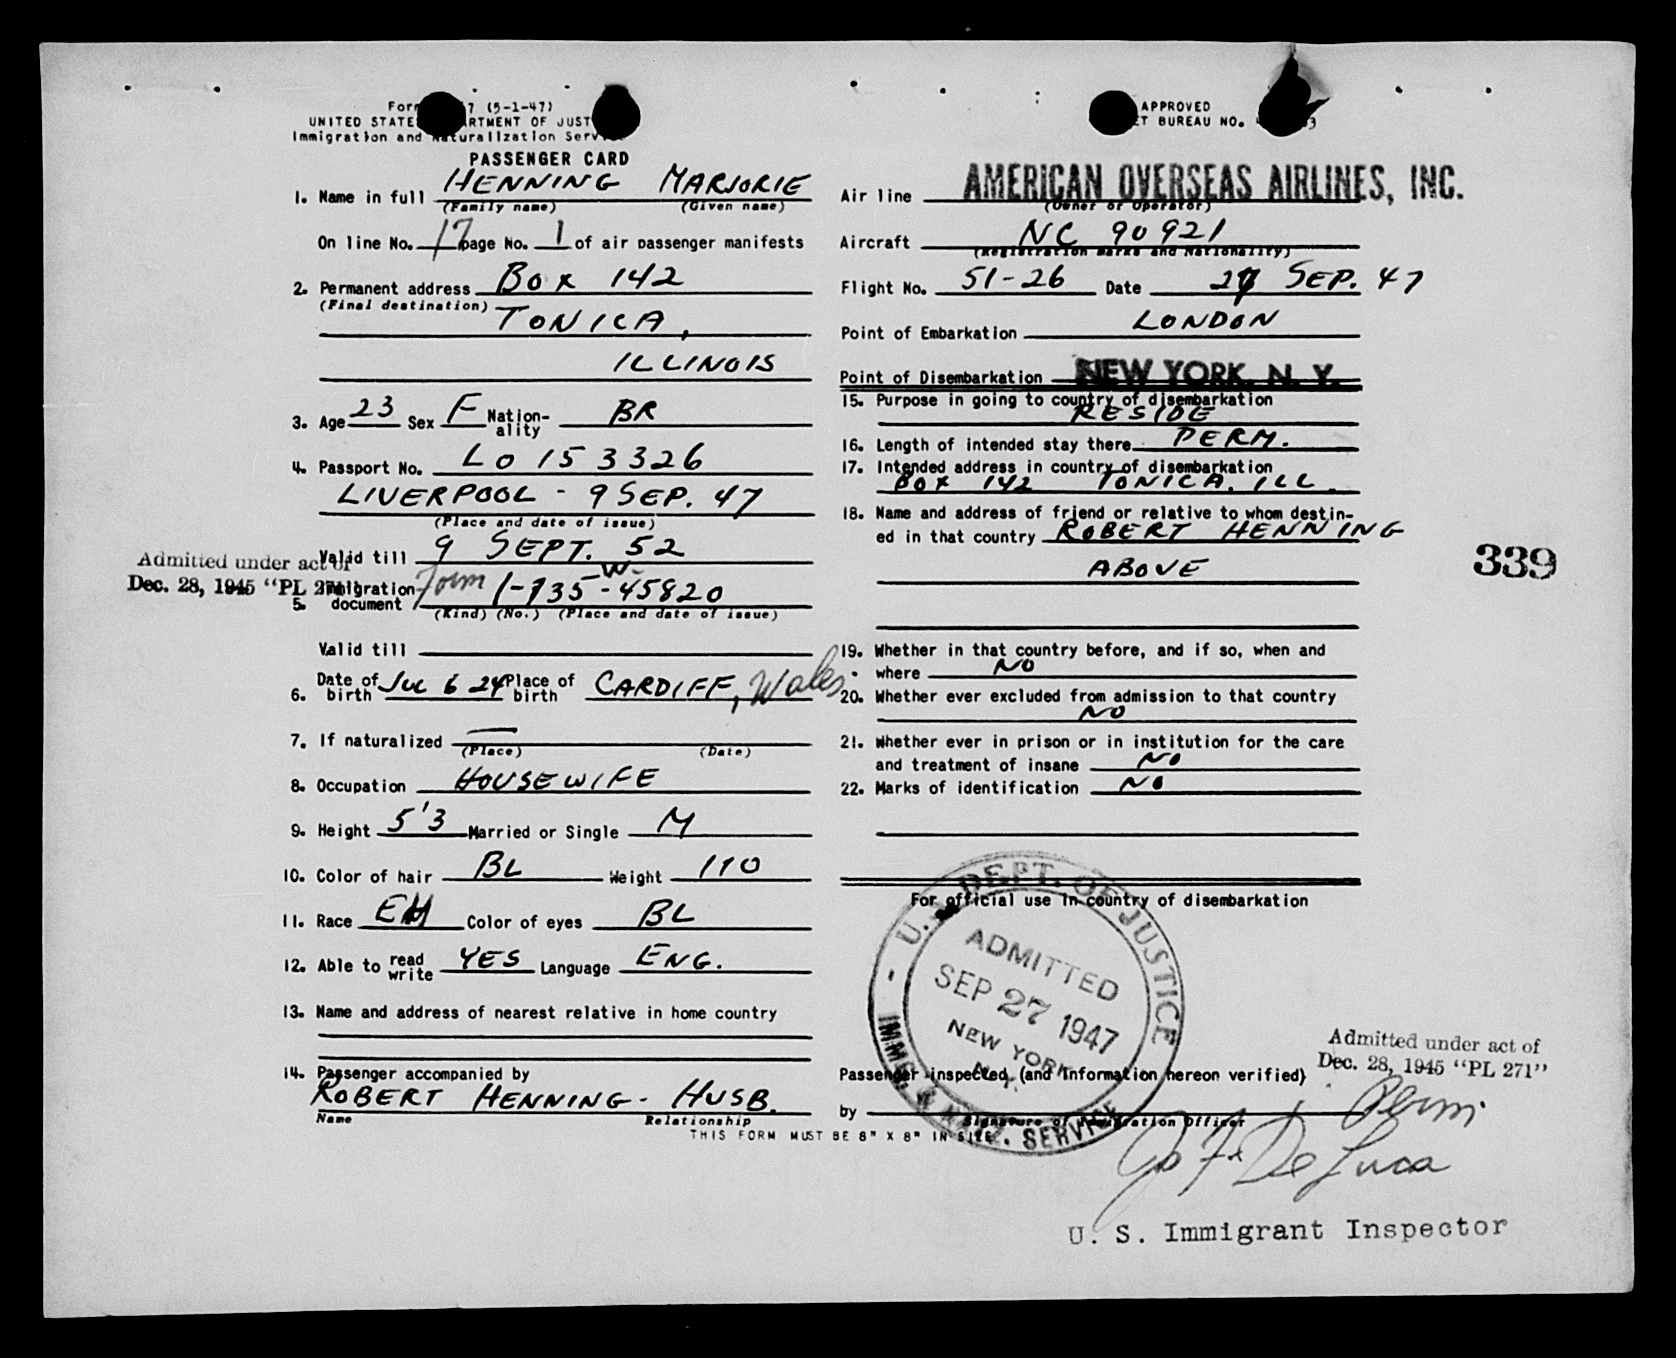 7 (5-1-47)
UNITED STATE RTMENT OF JUST
Immigration and Naturalization Serv
PASSENGER CARD
1. Name in full HENNING MARJORIE
(Family name) (Given name)
On line No. 17 page No. 1 of air passenger manifests
2. Permanent address BOX 142
(Final destination)
TONICA,
ILLINOIS
3. Age 23 Sex F Nation-ality BR
4. Passport No. LO 153326
LIVERPOOL - 9 SEP. 47
(Place and date of issue)
Valid till 9 SEPT. 52
Admitted under act of
Dec. 28, 1945 "PL 271"
5. Immigration document Form 1-735-W-45820
(Kind) (No.) (Place and date of issue)
Valid till
6. Date of birth JUL 6 24 Place of birth CARDIFF, Wales.
7. If naturalized —
(Place) (Date)
8. Occupation HOUSEWIFE
9. Height 5'3 Married or Single M
10. Color of hair BL Weight 110
11. Race Color of eyes BL
12. Able to read write YES Language ENG.
13. Name and address of nearest relative in home country
14. Passenger accompanied by
ROBERT HENNING - HUSB.
Name Relationship
THIS FORM MUST BE 8" X 8" IN SIZE.
APPROVED
ET BUREAU NO. 3
Air line AMERICAN OVERSEAS AIRLINES, INC.
(Owner or Operator)
Aircraft NC 90921
(Registration marks and Nationality)
Flight No. 51-26 Date 27 SEP. 47
Point of Embarkation LONDON
Point of Disembarkation NEW YORK, N. Y.
15. Purpose in going to country of disembarkation
RESIDE
16. Length of intended stay there PERM.
17. Intended address in country of disembarkation
BOX 142 TONICA, ILL.
18. Name and address of friend or relative to whom destin-
ed in that country ROBERT HENNING
ABOVE
339
19. Whether in that country before, and if so, when and
where NO
20. Whether ever excluded from admission to that country
NO
21. Whether ever in prison or in institution for the care
and treatment of insane NO
22. Marks of identification NO
For official use in country of disembarkation
U.S. DEPT. OF JUSTICE
ADMITTED
SEP 27 1947
NEW YORK
N.Y.
IMMIG. & NATZ. SERVICE
Admitted under act of
Dec. 28, 1945 "PL 271"
Passenger inspected, (and information hereon verified)
Perm.
by
Signature of Immigration Officer
Jo F. De Luca
U. S. Immigrant Inspector